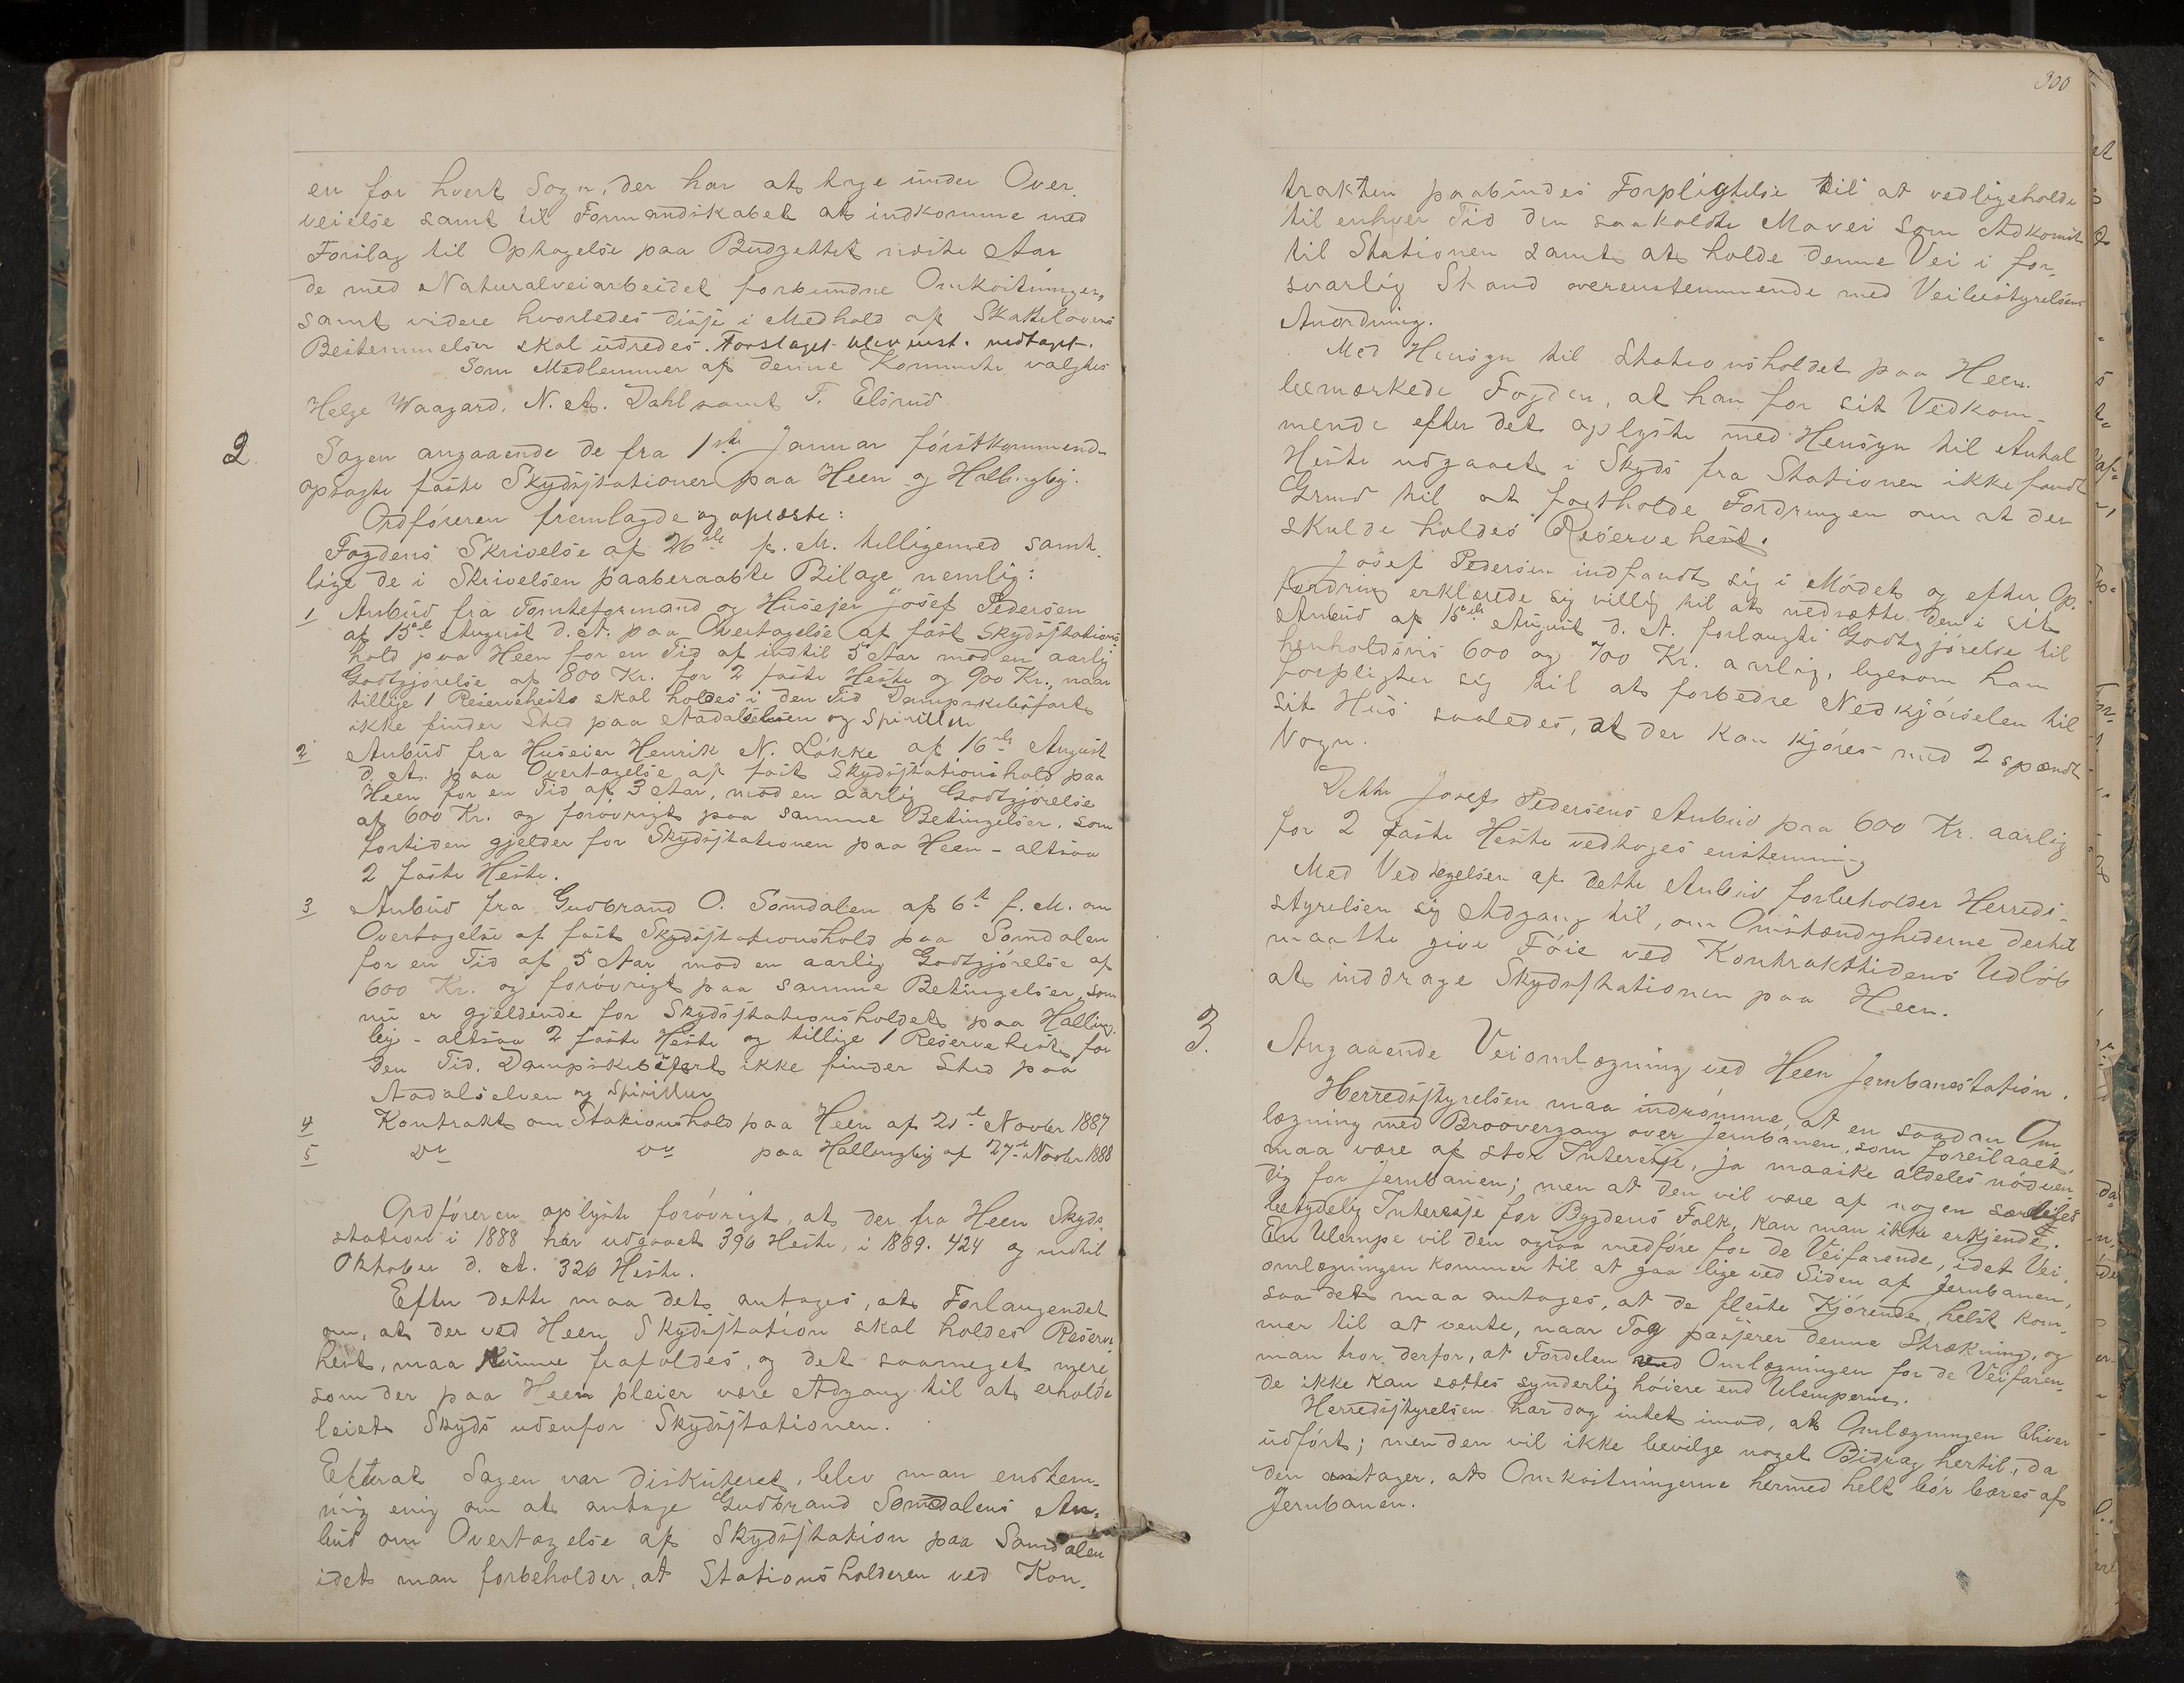 en for hvert Sogn, der har at tage under Over-
veielse samt til Formandskabet at indkomme med
Forslag til Optagelse paa Budgettet næste Aar
de med Naturalveiarbeidet forbundne Omkostninger,
samt videre hvorledes disse i Medhold af Skattelovens
Bestemmelser skal udredes. Forslaget blev enst. vedtaget.
Som Medlemmer af denne Kommite valgtes
Helge Waagard, N. A. Dahl samt T. Elsrud
2. Sagen angaaende de fra 1ste Januar førstkommende
opsagte faste Skydsstationer paa Heen og Hallingby.
Ordføreren fremlagde og oplæste:
Fogdens Skrivelse af 26de f. M. tilligemed samt-
lige de i Skrivelsen paaberaabte Bilage nemlig:
1 Anbud fra Tomteformand og Huseier Josef Pedersen
af 15de August d. A. paa Overtagelse af fast Skydsstations-
hold paa Heen for en Tid af indtil 5 Aar mod en aarlig
Godtgjørelse af 800 Kr. for 2 faste Heste og 900 Kr., naar
tillige 1 Reservehest skal holdes i den Tid Dampskibsfart
ikke finder Sted paa Aadalselven og Spirillen
2 Anbud fra Huseier Henrik N. Løkke af 16de August
d. A. paa Overtagelse af fast Skydsstationshold paa
Heen for en Tid af 3 Aar, mod en aarlig Godtgjørelse
af 600 Kr. og forøvrigt paa samme Betingelser, som
fortiden gjelder for Skydsstationen paa Heen - altsaa
2 faste Heste.
3 Anbud fra Gudbrand O. Somdalen af 6te f. M. om
Overtagelse af fast Skydsstationshold paa Somdalen
for en Tid af 5 Aar mod en aarlig Godtgjørelse af
600 Kr. og forøvrigt paa samme Betingelser, som
nu er gjeldende for Skydsstationsholdet paa Halling-
by - altsaa 2 faste Heste og tillige 1 Reservehest for
den Tid, Dampskibsfart ikke finder Sted paa
Aadalselven og Spirillen
4 Kontrakt om Stationshold paa Heen af 21de Novbr 1887
5 Do Do paa Hallingby af 27de Novbr 1888
Ordføreren oplyste forøvrigt, at der fra Heen Skyds-
station i 1888 har udgaaet 396 Heste, i 1889. 424 og indtil
Oktober d. A. 326 Heste.
Efter dette maa det antages, at Forlangendet
om, at der ved Heen Skydsstation skal holdes Reserve-
hest, maa kunne frafaldes, og det saameget mere
som der paa Heen pleier være Adgang til at erholde
leiet Skyds udenfor Skydsstationen.
Efterat Sagen var diskuteret, blev man enstem-
mig enig om at antage Gudbrand Somdalens An-
bud om Overtagelse af Skydsstation paa Somdalen
idet man forbeholder, at Stationsholderen ved Kon-
300
trakten paabindes Forpligtelse til at vedligeholde
til enhver Tid den saakaldte Movei som Adkomst
til Stationen samt at holde denne Vei i for-
svarlig Stand overenstemmende med Veibestyrelsens
Anordning.
Med Hensyn til Stationsholdet paa Heen
bemærkede Fogden, at han for sit Vedkom-
mende efter det oplyste med Hensyn til Antal
Heste udgaaet i Skyds fra Stationen ikke fandt
Grund til at fastholde Fordringen om at der
skulde holdes Reservehest.
Josef Pedersen indfandt sig i Mødet og efter Op-
fordring erklærede sig villig til at nedsætte den i sit
Anbud af 15de August d. A. forlangte Godtgjørelse til
henholdsvis 600 og 700 Kr. aarlig, ligesom han
forpligter sig til at forbedre Nedkjørselen til
sit Hus saaledes, at der kan kjøres med 2 spændt
Vogn.
Dette Josef Pedersens Anbud paa 600 Kr. aarlig
for 2 faste Heste vedtoges enstemmig
Med Vedtagelsen af dette Anbud forbeholder Herreds-
styrelsen sig Adgang til, om Omstændighederne dertil
maatte give Føie ved Kontrakttidens Udløb
at inddrage Skydsstationen paa Heen.
3. Angaaende Veiomlægning ved Heen Jernbanestation.
Herredsstyrelsen maa indrømme, at en saadan Om-
lægning med Broovergang over Jernbanen, som foreslaaet,
maa være af stor Interesse, ja maaske aldeles nødven-
dig for Jernbanen; men at den vil være af nogen særdeles
betydelig Interesse for Bygdens Folk, kan man ikke erkjende.
En Ulempe vil den ogsaa medføre for de Veifarende, idet Vei-
omlægningen kommer til at gaa lige ved Siden af Jernbanen,
saa det maa antages, at de fleste Kjørende helst kom-
mer til at vente, naar Tog passerer denne Strækning, og
man tror derfor, at Fordelen ved Omlægningen for de Veifaren-
de ikke kan sættes synderlig høiere end Ulemperne.
Herredsstyrelsen har dog intet imod, at Omlægningen bliver
udført; men den vil ikke bevilge noget Bidrag hertil, da
den antager, at Omkostningerne hermed helt bør bæres af
Jernbanen.